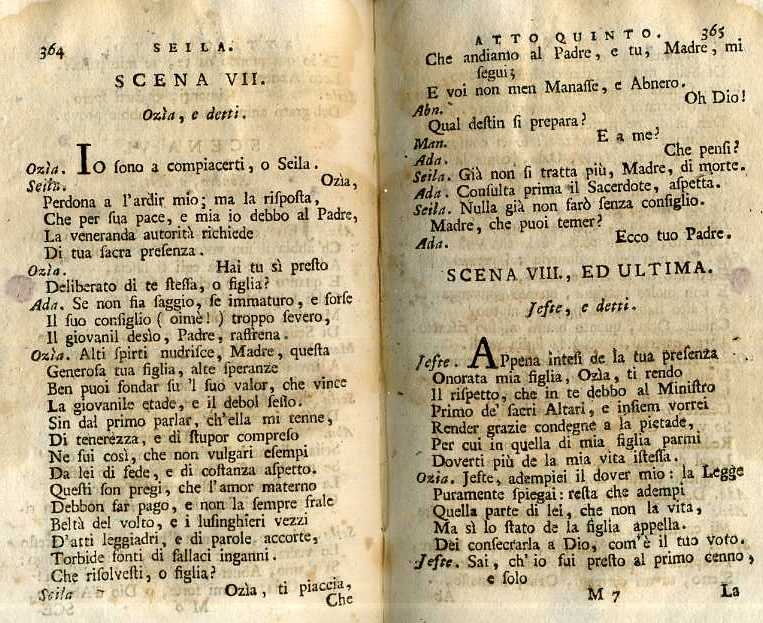 364 SEILA.
SCENA VII.
Ozìa, e detti.
Ozìa. Io sono a compiacerti, o Seila.
Seila. Ozìa,
Perdona a l'ardir mio; ma la risposta,
Che per sua pace, e mia io debbo al Padre,
La veneranda autorità richiede
Di tua sacra presenza.
Ozìa. Hai tu sì presto
Deliberato di te stessa, o figlia?
Ada. Se non fia saggio, se immaturo, e forse
Il suo consiglio (oimè!) troppo severo,
Il giovanil desìo, Padre, raffrena.
Ozìa. Alti spirti nudrisce, Madre, questa
Generosa tua figlia, alte speranze
Ben puoi fondar su 'l suo valor, che vince
La giovanile etade, e il debol sesso.
Sin dal primo parlar, ch'ella mi tenne,
Di tenerezza, e di stupor compreso
Ne fui così, che non vulgari esempi
Da lei di fede, e di costanza aspetto.
Questi son pregi, che l'amor materno
Debbon far pago, e non la sempre frale
Beltà del volto, e i lusinghieri vezzi
D'atti leggiadri, e di parole accorte,
Torbide fonti di fallaci inganni.
Che risolvesti, o figlia?
Seila Ozìa, ti piaccia,
Che
ATTO QUINTO. 365
Che andiamo al Padre, e tu, Madre, mi
segui;
E voi non men Manasse, e Abnero.
Abn. Oh Dio!
Qual destin si prepara?
Man. E a me?
Ada. Che pensi?
Seila. Già non si tratta più, Madre, di morte.
Ada. Consulta prima il Sacerdote, aspetta.
Seila. Nulla già non farò senza consiglio.
Madre, che puoi temer?
Ada. Ecco tuo Padre.
SCENA VIII., ED ULTIMA.
Jefte, e detti.
Jefte. APpena intesi de la tua presenza
Onorata mia figlia, Ozìa, ti rendo
Il rispetto, che in te debbo al Ministro
Primo de' sacri Altari, e insiem vorrei
Render grazie condegne a la pietade,
Per cui in quella di mia figlia parmi
Doverti più de la mia vita istessa.
Ozìa. Jefte, adempiei il dover mio: la Legge
Puramente spiegai: resta che adempi
Quella parte di lei, che non la vita,
Ma sì lo stato de la figlia appella.
Dei consecrarla a Dio, com'è il tuo voto.
Jefte. Sai, ch'io fui presto al primo cenno,
e solo
M 7 La